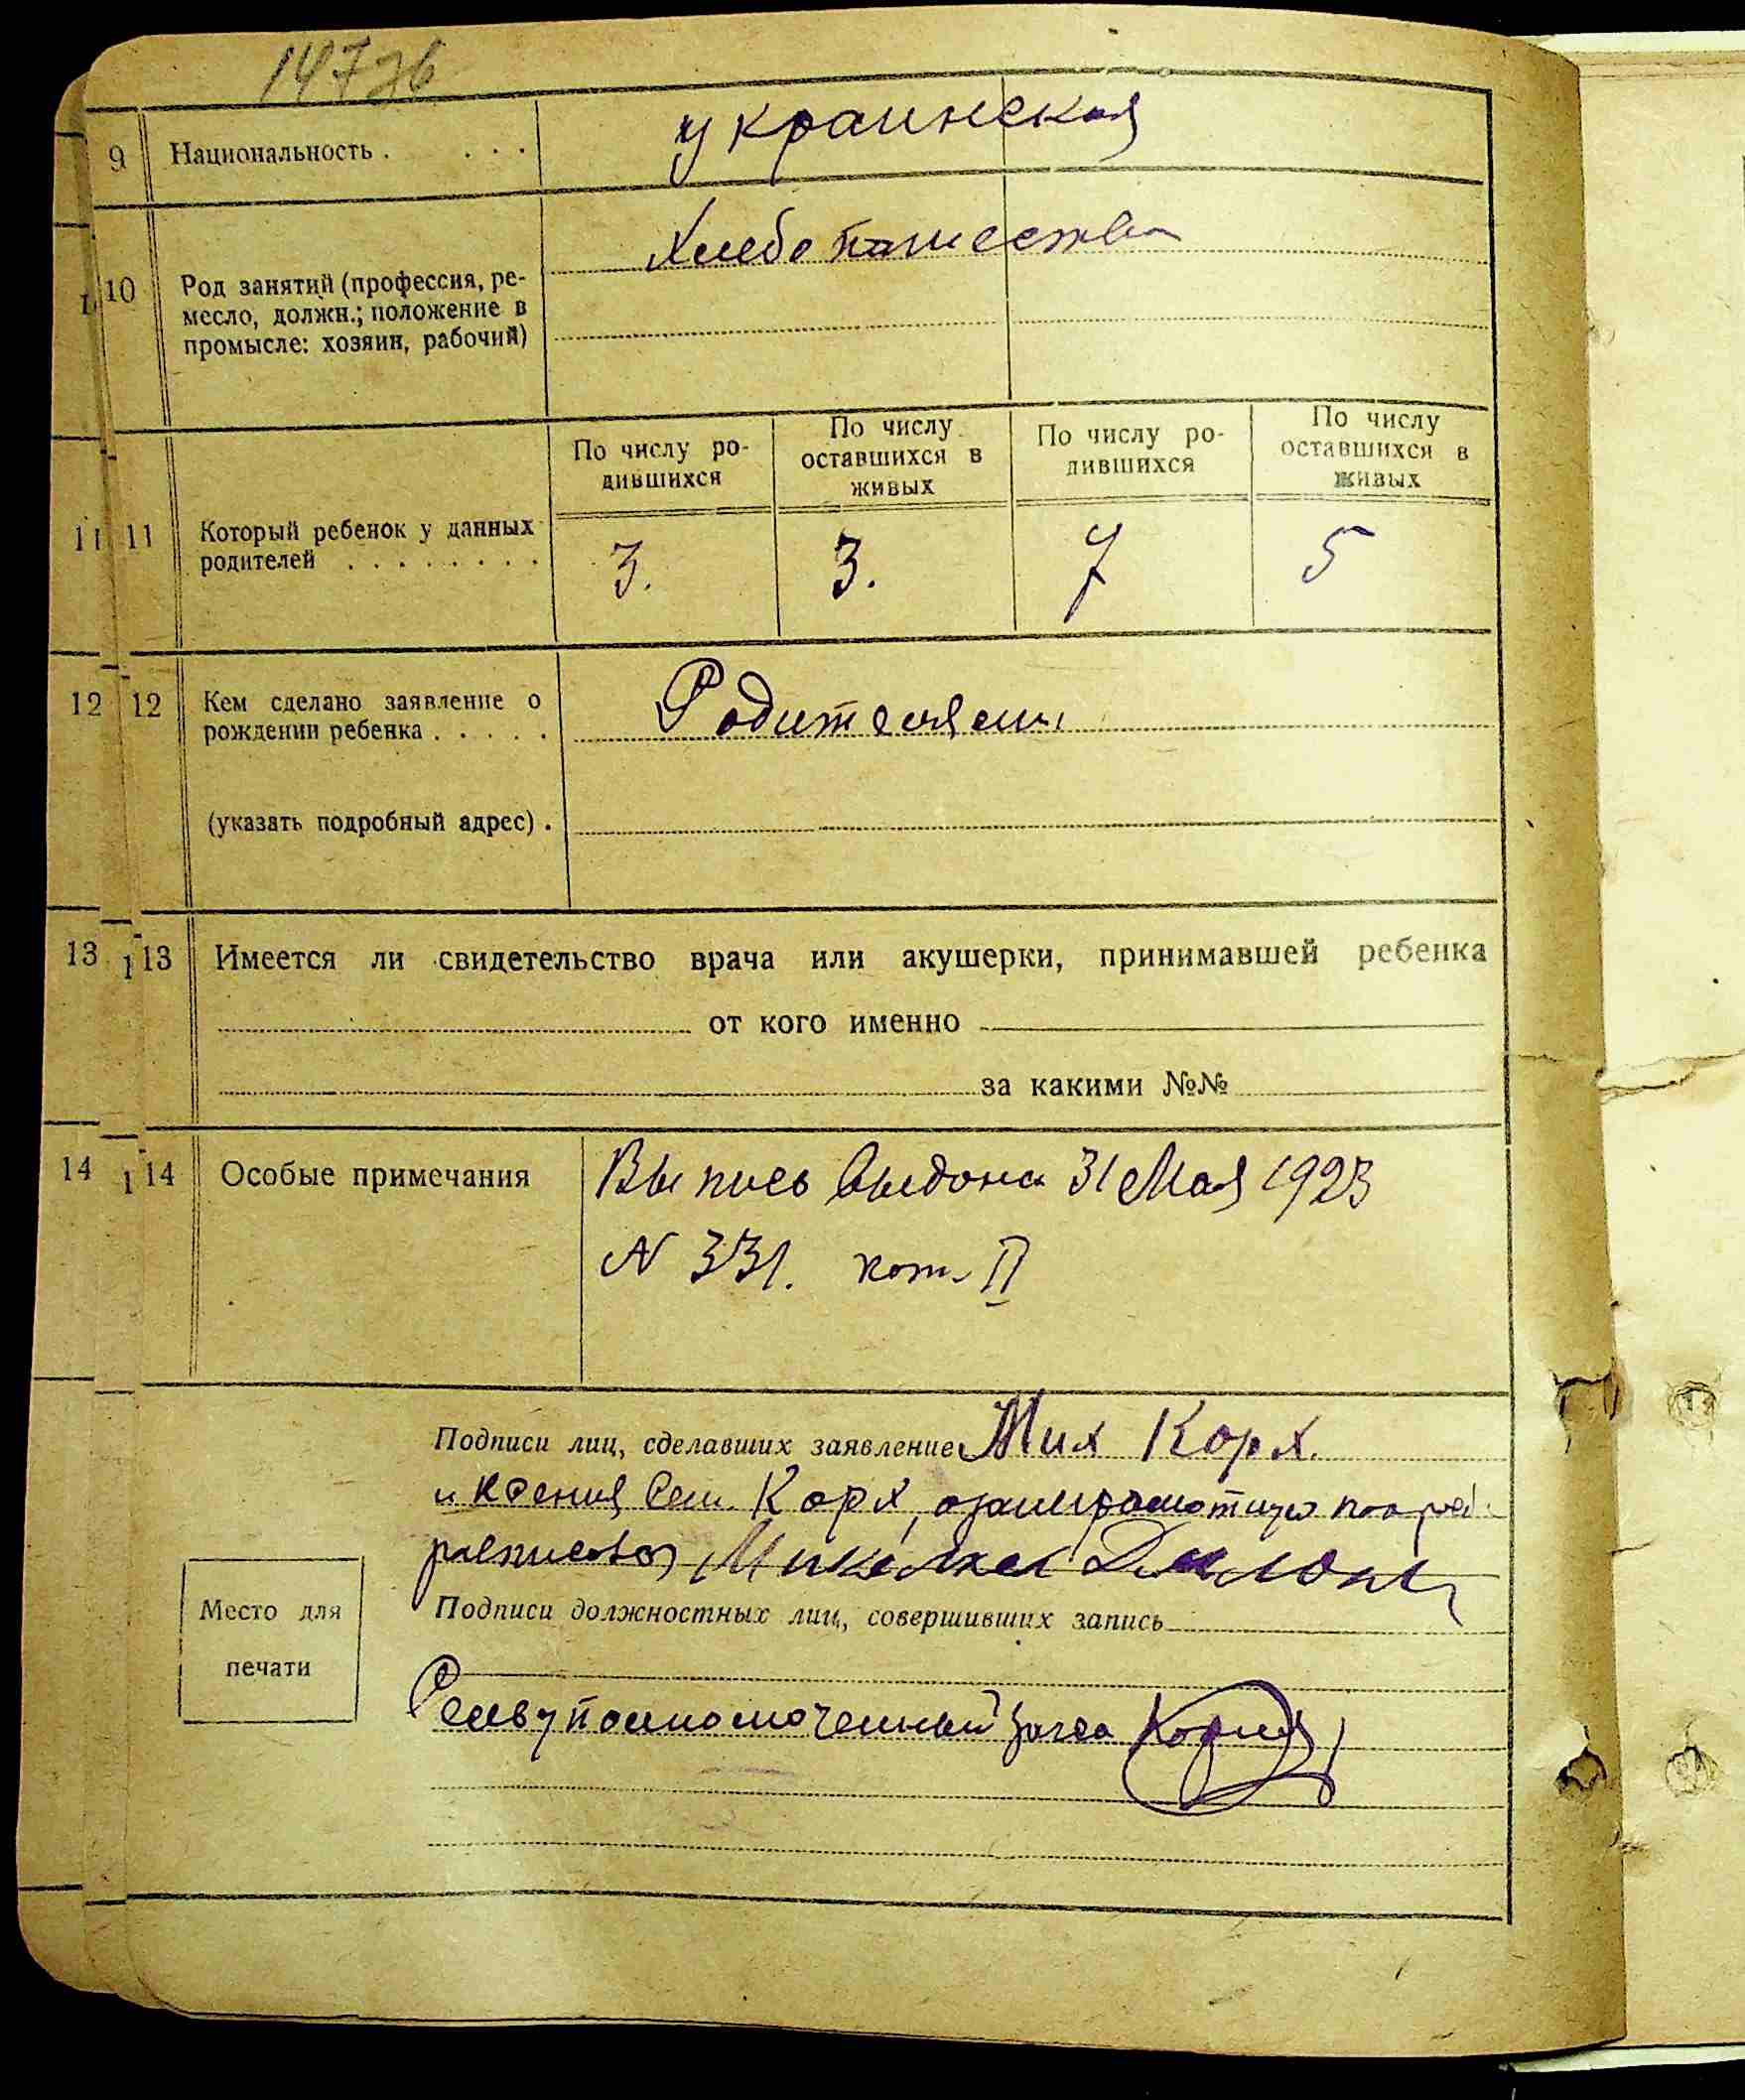 147 зв
9 Национальность . . . . украинская
10 Род занятий (профессия, ре-
месло, должн.; положение в
промысле: хозяин, рабочий)
Хлебопашество
По числу ро-
дившихся
По числу
оставшихся в
живых
По числу ро-
дившихся
По числу
оставшихся в
живых
11 11 Который ребенок у данных
родителей . . . . . . . .
3. 3. 7 5
12 12 Кем сделано заявление о
рождении ребенка . . . . .
Родителями
(указать подробный адрес) .
13 13 Имеется ли свидетельство врача или акушерки, принимавшей ребенка
от кого именно
за какими №№
14 14 Особые примечания
Выпись выдона 31 Мая 1923
N 331. кот. II
Подписи лиц, сделавших заявление Мих Корх.
и Ксения Сем. Корх, а за
Подписи должностных лиц, совершивших запись
Место для
печати